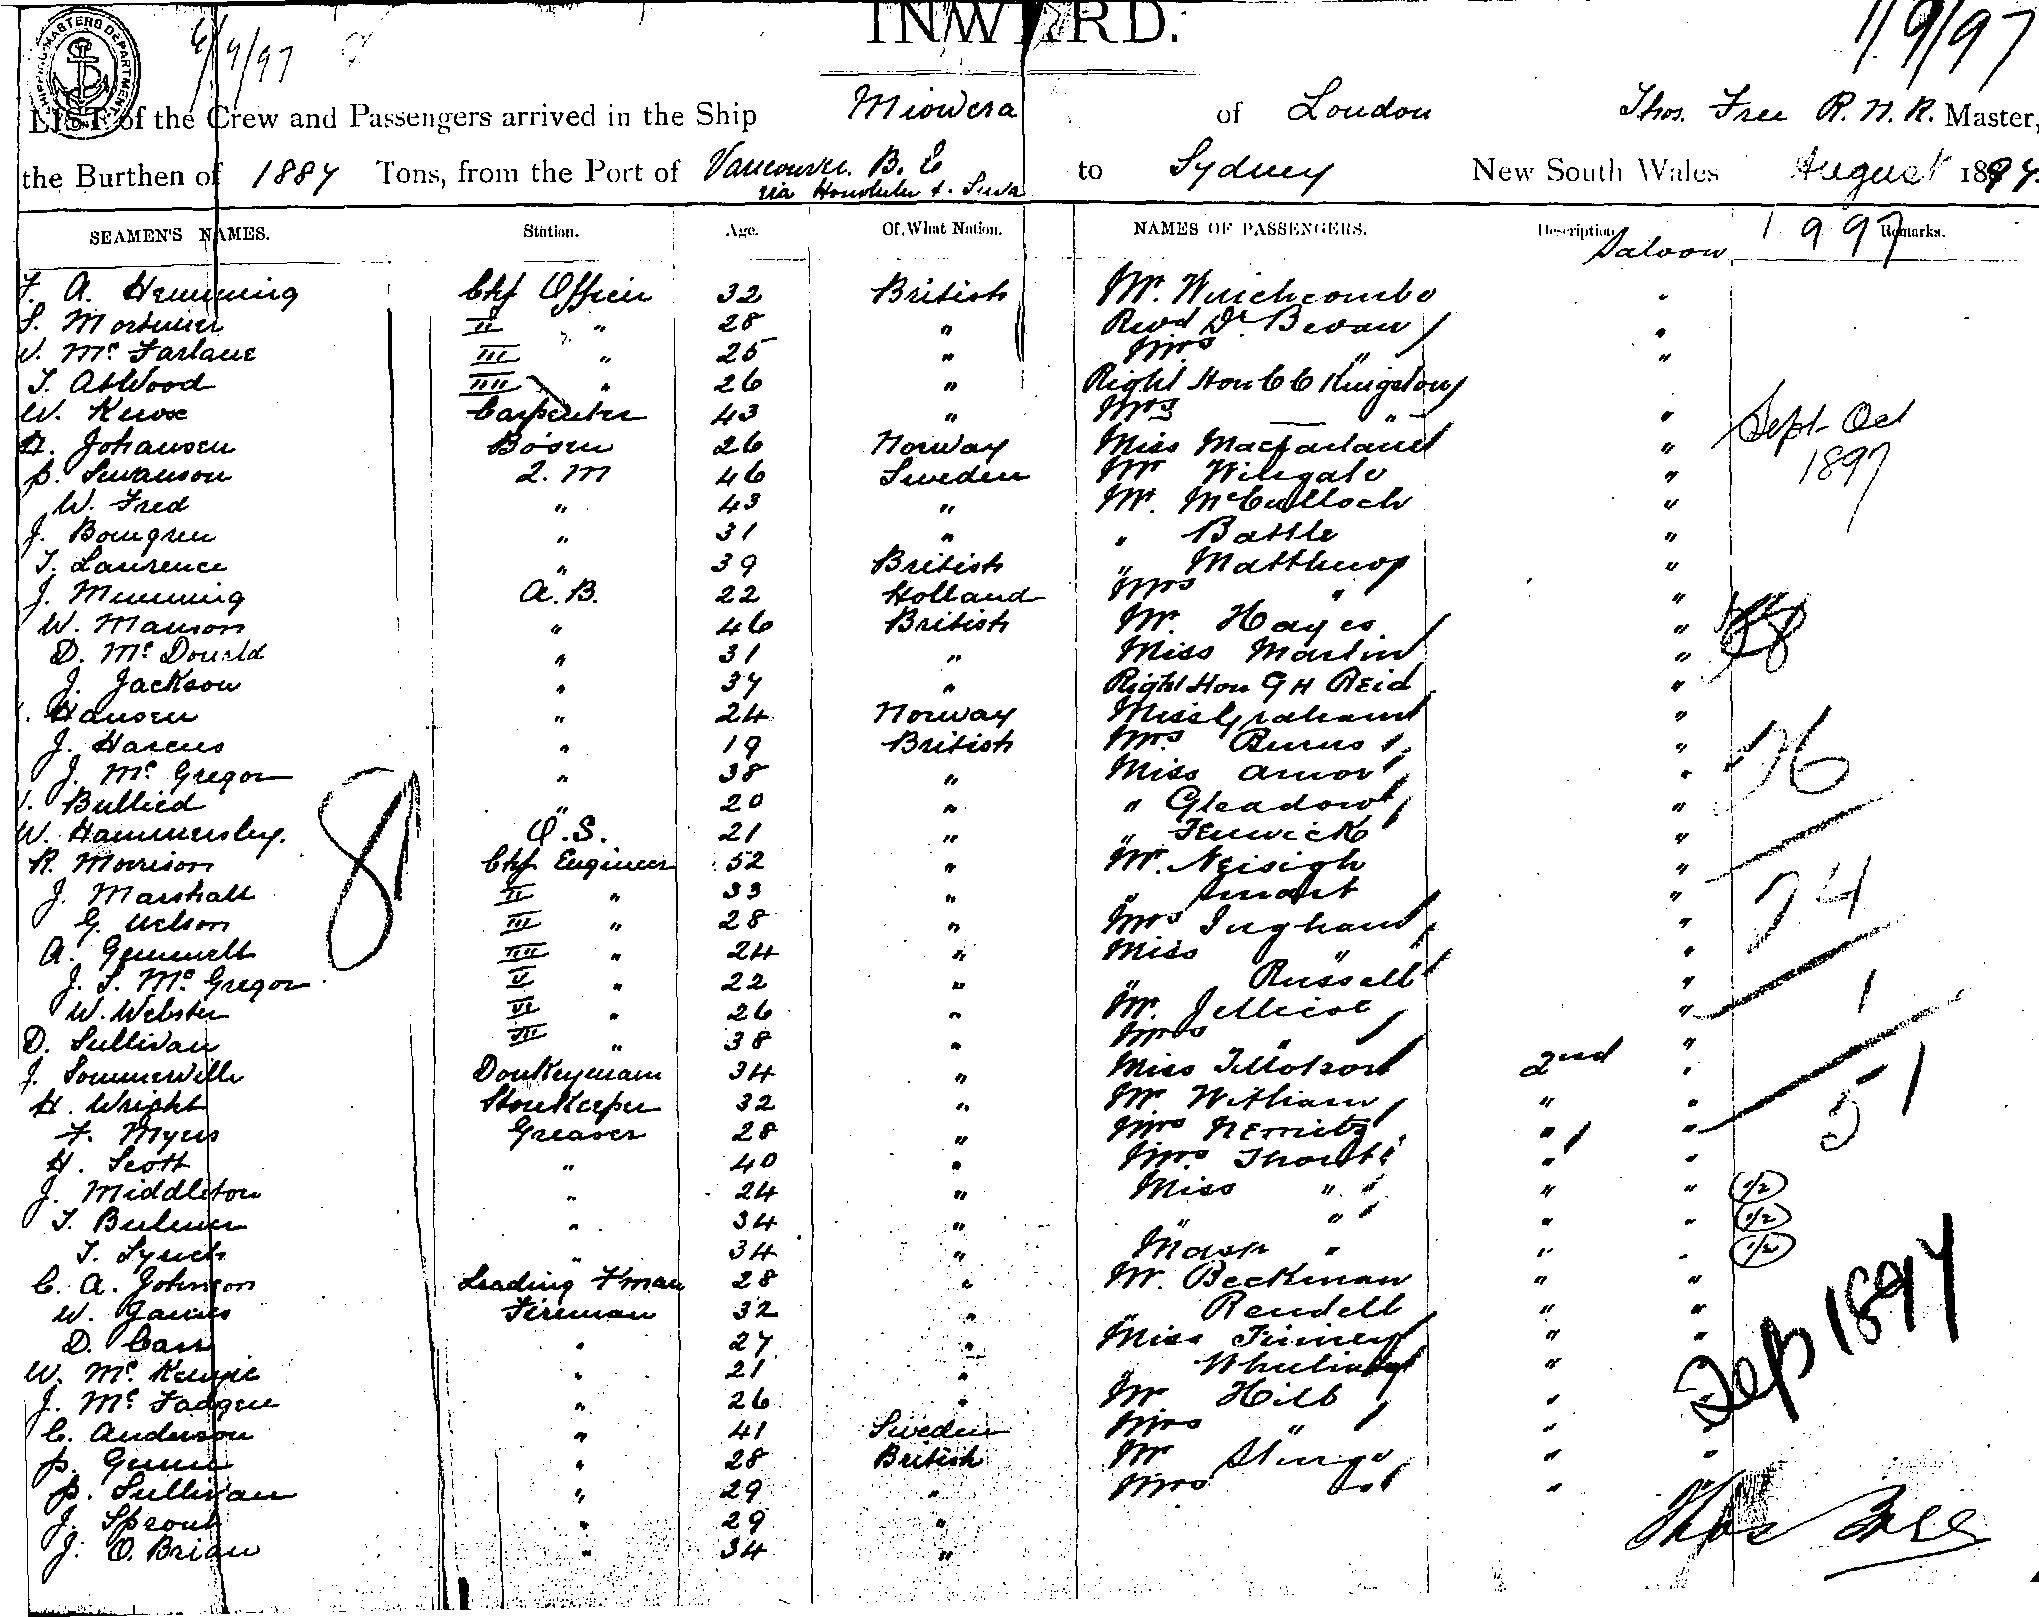 INWARD.
6/9/97
1/9/97
SHIPPING MASTERS DEPARTMENT
LIST of the Crew and Passengers arrived in the Ship Miowera of London Thos. Free R.N.R. Master,
the Burthen of 1887 Tons, from the Port of Vancouver. B.C to Sydney New South Wales August 1897.
via Honolulu & Suva
SEAMEN'S NAMES. Station. Age. Of What Nation. NAMES OF PASSENGERS. Description Remarks.
Saloon 1997
F. A. Hemming Chf Officer 32 British Mr. Winchcombe "
S. Mortimer II " 28 " Revd Dr Bevan "
W. Mc Farlane III " 25 " Mrs " "
T. Atwood IIII " 26 " Right Hon C C Kingston
W. Carpenter 43 " Mrs " "
H. Johansen Bosun 26 Norway Miss Macfarland "
P. Swanson Q. M 46 Sweden Mr "
W. Fred " 43 " Mr. McCulloch "
J. Bomgren " 31 " " Battle "
T. Laurence " 39 British " Matthews "
J. Munning A.B. 22 Holland Mrs " "
W. Manson " 46 British Mr. Hayes "
D. Mc Donald " 31 " Miss Martin "
J. Jackson " 37 " Right Hon G H Reid "
Hansen " 24 Norway Miss Graham "
J. Harcus " 19 British Mrs Burns "
J. Mc Gregor " 38 " Miss Amor "
Bullied " 20 " " Gleadow "
W. Hammersley. O.S. 21 " " Fenwick "
R. Morrison Chf Engineer 52 " Mr. "
J. Marshall II " 33 " " Smart "
G. Nelson III " 28 " Mrs Ingham "
A. Gemmell IIII " 24 " Miss " "
J. S. Mc Gregor V " 22 " " Russell "
W. Webster VI " 26 " Mr. Jellicoe "
D. Sullivan VII " 38 " Mrs " "
J. Sommerville Donkeyman 34 " Miss Tillotson 2nd "
H. Wright Storekeeper 32 " Mr. Witham " "
F. Myers Greaser 28 " Mrs Nemitz " "
H. Scott " 40 " Mrs " "
J. Middleton " 24 " Miss " " " 1/2
T. Bulmer " 34 " " " " " 1/2
T. Lynch " 34 " Mast " " " 1/2
C. A. Johnson Leading Fman 28 " Mr. Beckman " "
W. James Fireman 32 " " Rendell " "
D. Carr " 27 " Miss Finney " "
W. Mc Kenzie " 21 " "
J. Mc Fadgen " 26 " Mr Hill "
C. Anderson " 41 Sweden Mrs " "
P. Gunn " 28 British Mr "
P. Sullivan " 29 " Mrs " "
J. Sproul " 29 "
J. O. Brian " 34 "
81
Sept-Oct
1897
76
24
1
51
Sep 1897
Thos Free